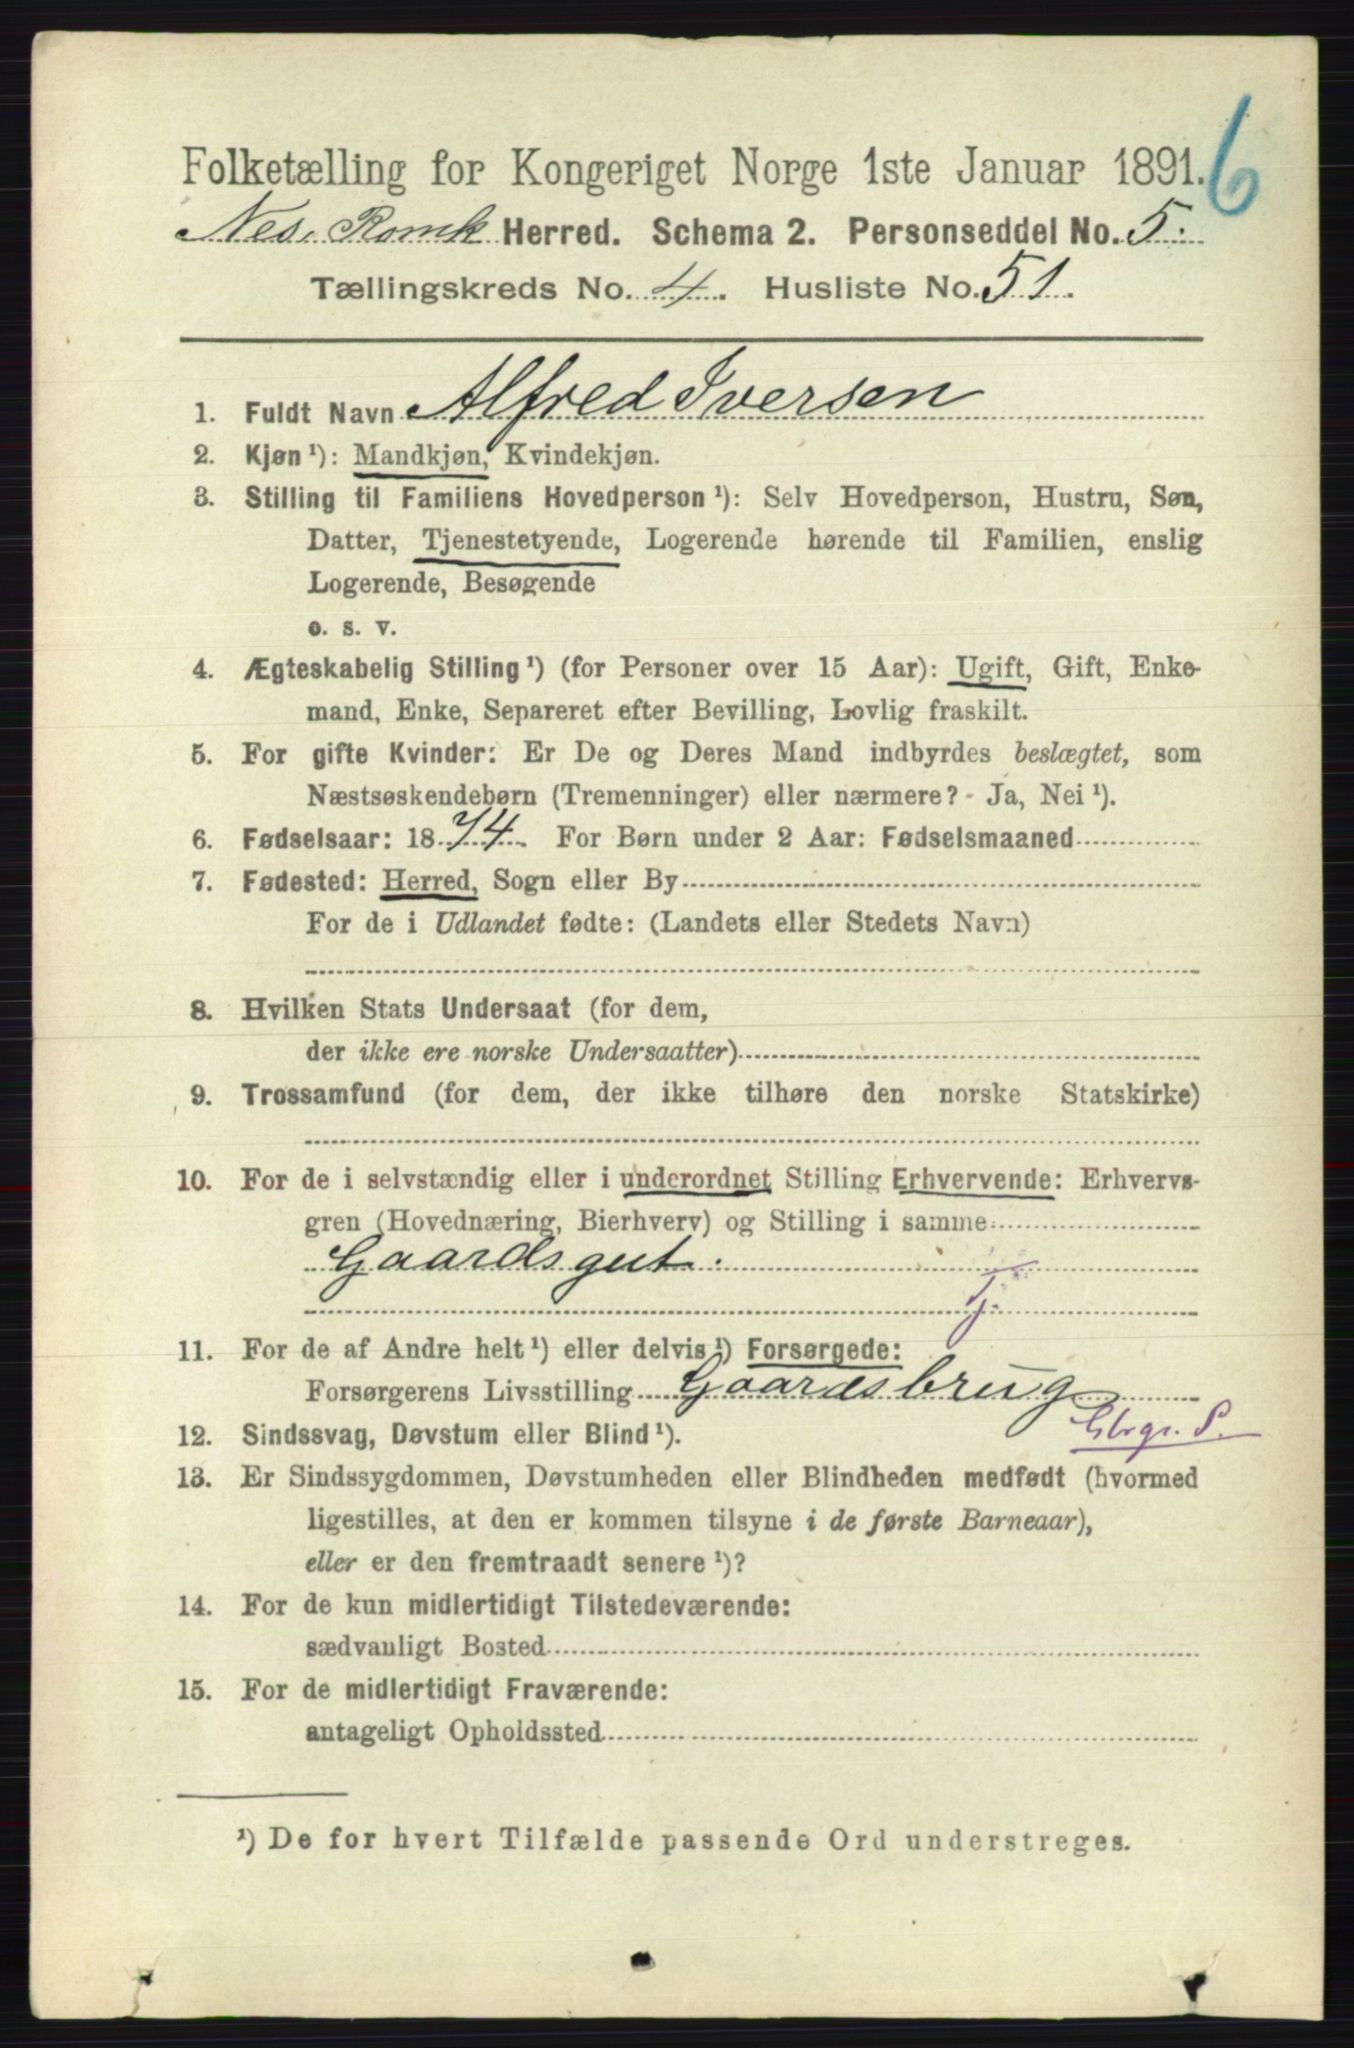 6
Folketælling for Kongeriget Norge 1ste Januar 1891.
Nes, Romk Herred. Schema 2. Personseddel No. 5.
Tællingskreds No. 4. Husliste No. 51.
1. Fuldt Navn Alfred Iversen
2. Kjøn ¹): Mandkjøn, Kvindekjøn.
3. Stilling til Familiens Hovedperson ¹): Selv Hovedperson, Hustru, Søn,
Datter, Tjenestetyende, Logerende hørende til Familien, enslig
Logerende, Besøgende
o. s. v.
4. Ægteskabelig Stilling ¹) (for Personer over 15 Aar): Ugift, Gift, Enke-
mand, Enke, Separeret efter Bevilling, Lovlig fraskilt.
5. For gifte Kvinder: Er De og Deres Mand indbyrdes beslægtet, som
Næstsøskendebørn (Tremenninger) eller nærmere? - Ja, Nei ¹).
6. Fødselsaar: 1874. For Børn under 2 Aar: Fødselsmaaned
7. Fødested: Herred, Sogn eller By
For de i Udlandet fødte: (Landets eller Stedets Navn)
8. Hvilken Stats Undersaat (for dem,
der ikke ere norske Undersaatter)
9. Trossamfund (for dem, der ikke tilhøre den norske Statskirke)
10. For de i selvstændig eller i underordnet Stilling Erhvervende: Erhvervs-
gren (Hovednæring, Bierhverv) og Stilling i samme
Gaardsgut.
Tj.
11. For de af Andre helt ¹) eller delvis ¹) Forsørgede:
Forsørgerens Livsstilling Gaardsbrug
Gbrgr. S.
12. Sindssvag, Døvstum eller Blind ¹).
13. Er Sindssygdommen, Døvstumheden eller Blindheden medfødt (hvormed
ligestilles, at den er kommen tilsyne i de første Barneaar),
eller er den fremtraadt senere ¹)?
14. For de kun midlertidigt Tilstedeværende:
sædvanligt Bosted
15. For de midlertidigt Fraværende:
antageligt Opholdssted
¹) De for hvert Tilfælde passende Ord understreges.